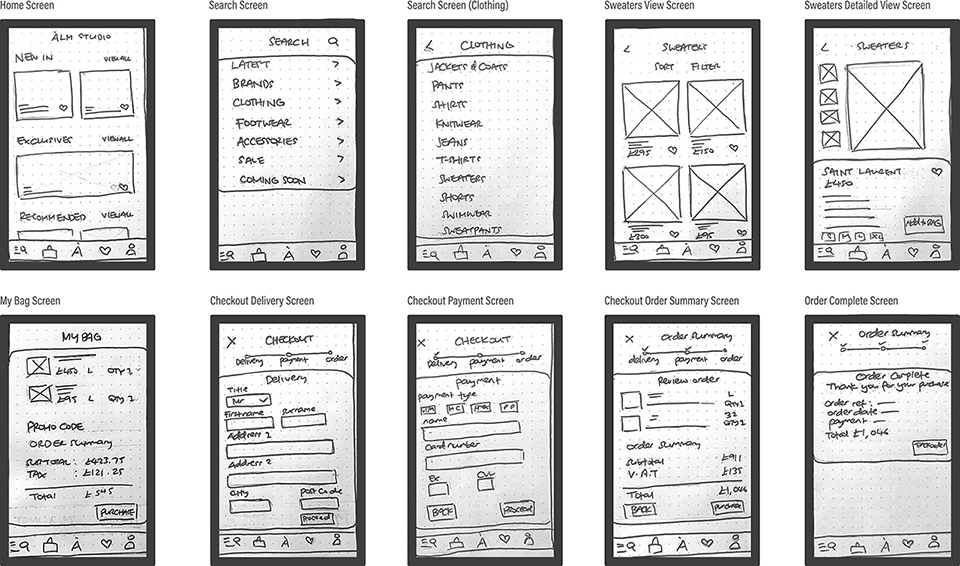 Home Screen
ALM STUDIO
NEW IN VIEW ALL
EXCLUSIVES VIEW ALL
RECOMMENDED VIEW ALL
Search Screen
SEARCH
LATEST >
BRANDS >
CLOTHING >
FOOTWEAR >
ACCESSORIES >
SALE >
COMING SOON >
Search Screen (Clothing)
< CLOTHING
JACKETS & COATS
PANTS
SHIRTS
KNITWEAR
JEANS
T-SHIRTS
SWEATERS
SHORTS
SWIMWEAR
SWEATPANTS
Sweaters View Screen
< SWEATERS
SORT FILTER
£295 £150
£200 £95
Sweaters Detailed View Screen
< SWEATERS
SAINT LAURENT
£450
Add to BAG
My Bag Screen
MY BAG
£450 L QTY 2
£95 L QTY 2
PROMO CODE
ORDER Summary
SUBTOTAL : £423.75
TAX : £121.25
Total £545
PURCHASE
Checkout Delivery Screen
X CHECKOUT
Delivery payment order
Delivery
Title
Mr
Firstname Surname
Address 1
Address 2
City Post Code
Proceed
Checkout Payment Screen
X CHECKOUT
Delivery payment order
payment
payment type
MC Amex PP
name
Card number
Ex CVV
BACK PROCEED
Checkout Order Summary Screen
X Order Summary
delivery payment order
Review order
L
QTY 2
32
QTY 2
Order Summary
Subtotal £911
V.A.T £135
Total £1,046
BACK Purchase
Order Complete Screen
X Order Summary
Order Complete
Thank you for your purchase
Order ref :
order date
payment
Total £1,046